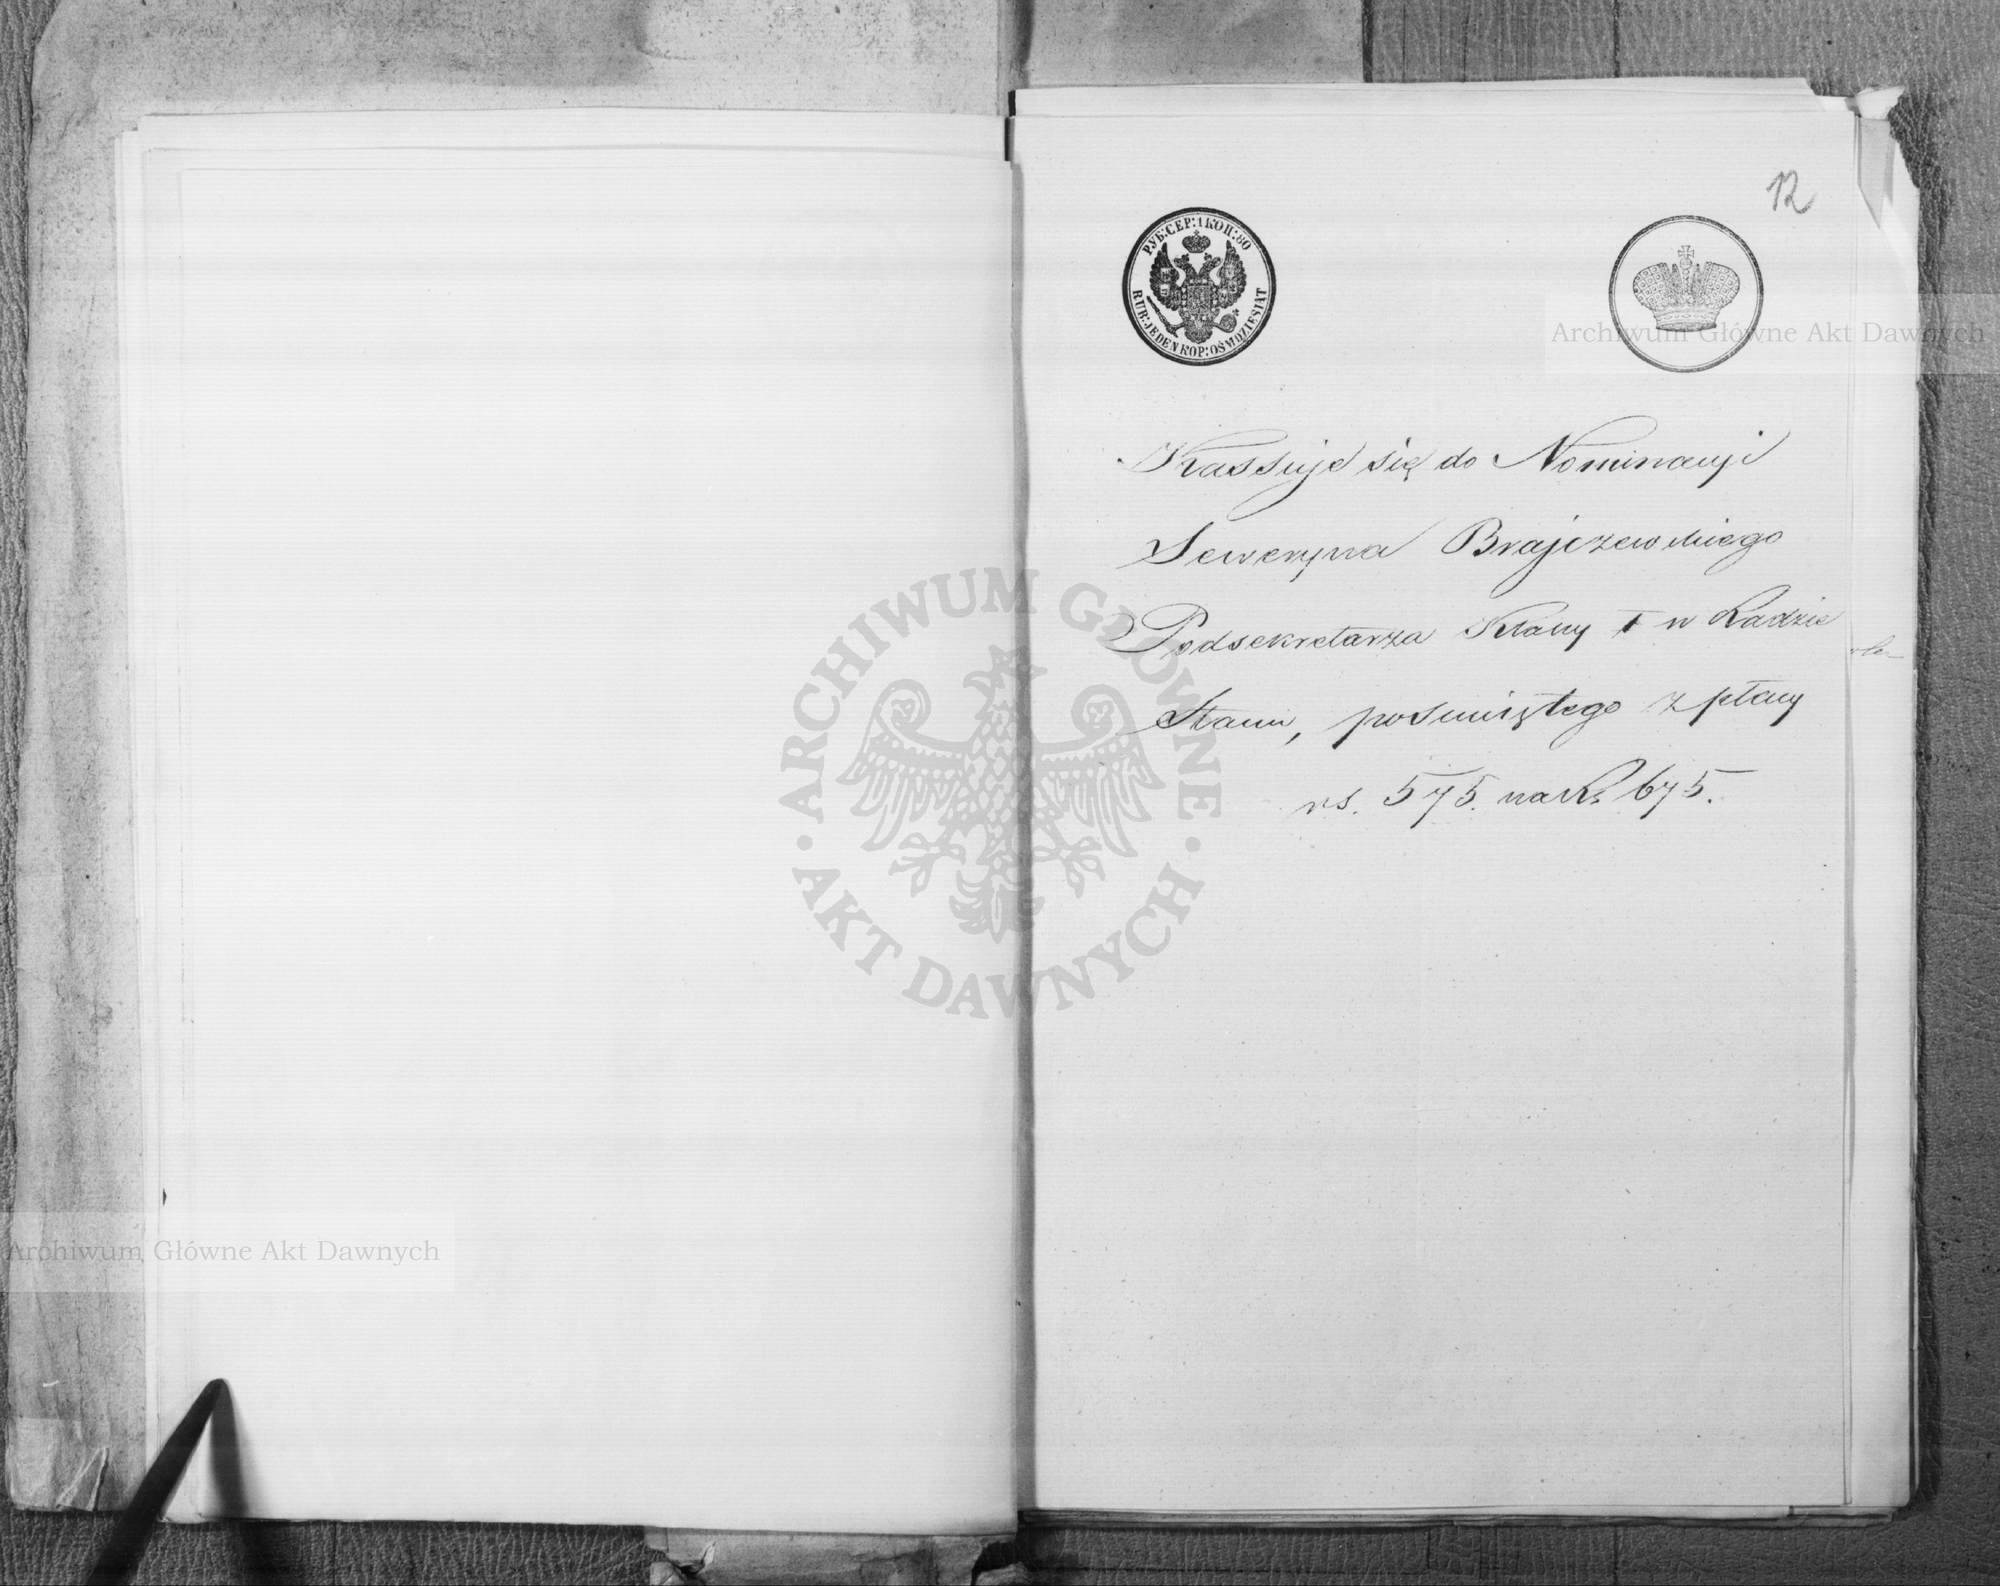 12
РУБ:СЕР:1 КОП:80
RUB:JEDEN KOP:OŚMDZIESIĄT
Kassuje się do Nominacyi
Seweryna Brajczewskiego
Podsekretarza Klassy I w Radzie
Stanu, posuniętego z płacy
rs. 575. na Rs 675.
Archiwum Główne Akt Dawnych
ARCHIWUM GŁÓWNE
AKT DAWNYCH
Archiwum Główne Akt Dawnych